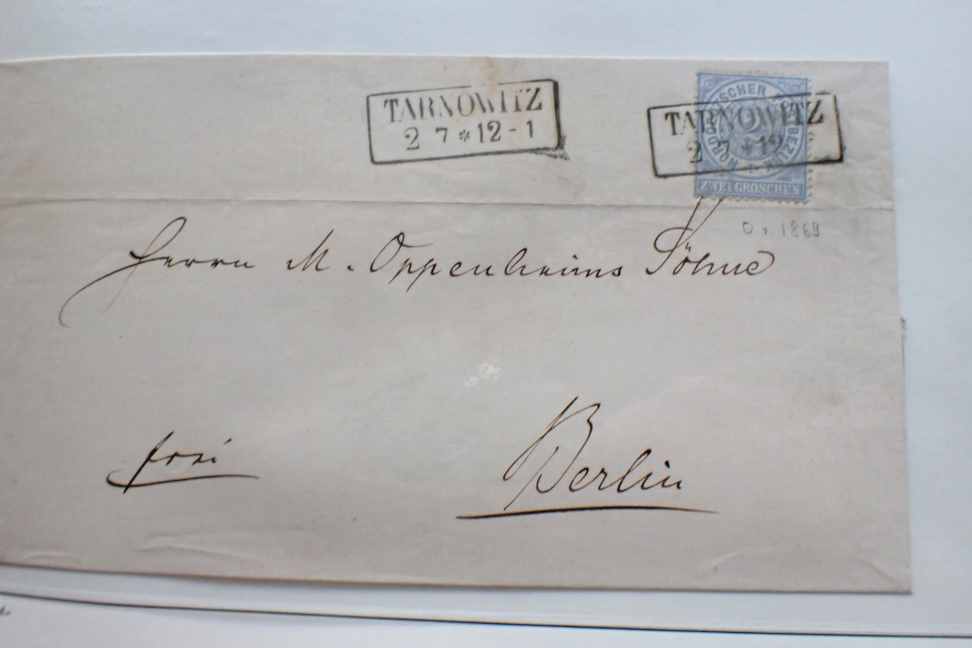 TARNOWITZ
2 7 * 12 - 1
TARNOWITZ
2 7 * 12
NORDDEUTSCHER POSTBEZIRK
ZWEI GROSCHEN
1869
Herrn M. Oppenheims Söhne
Berlin